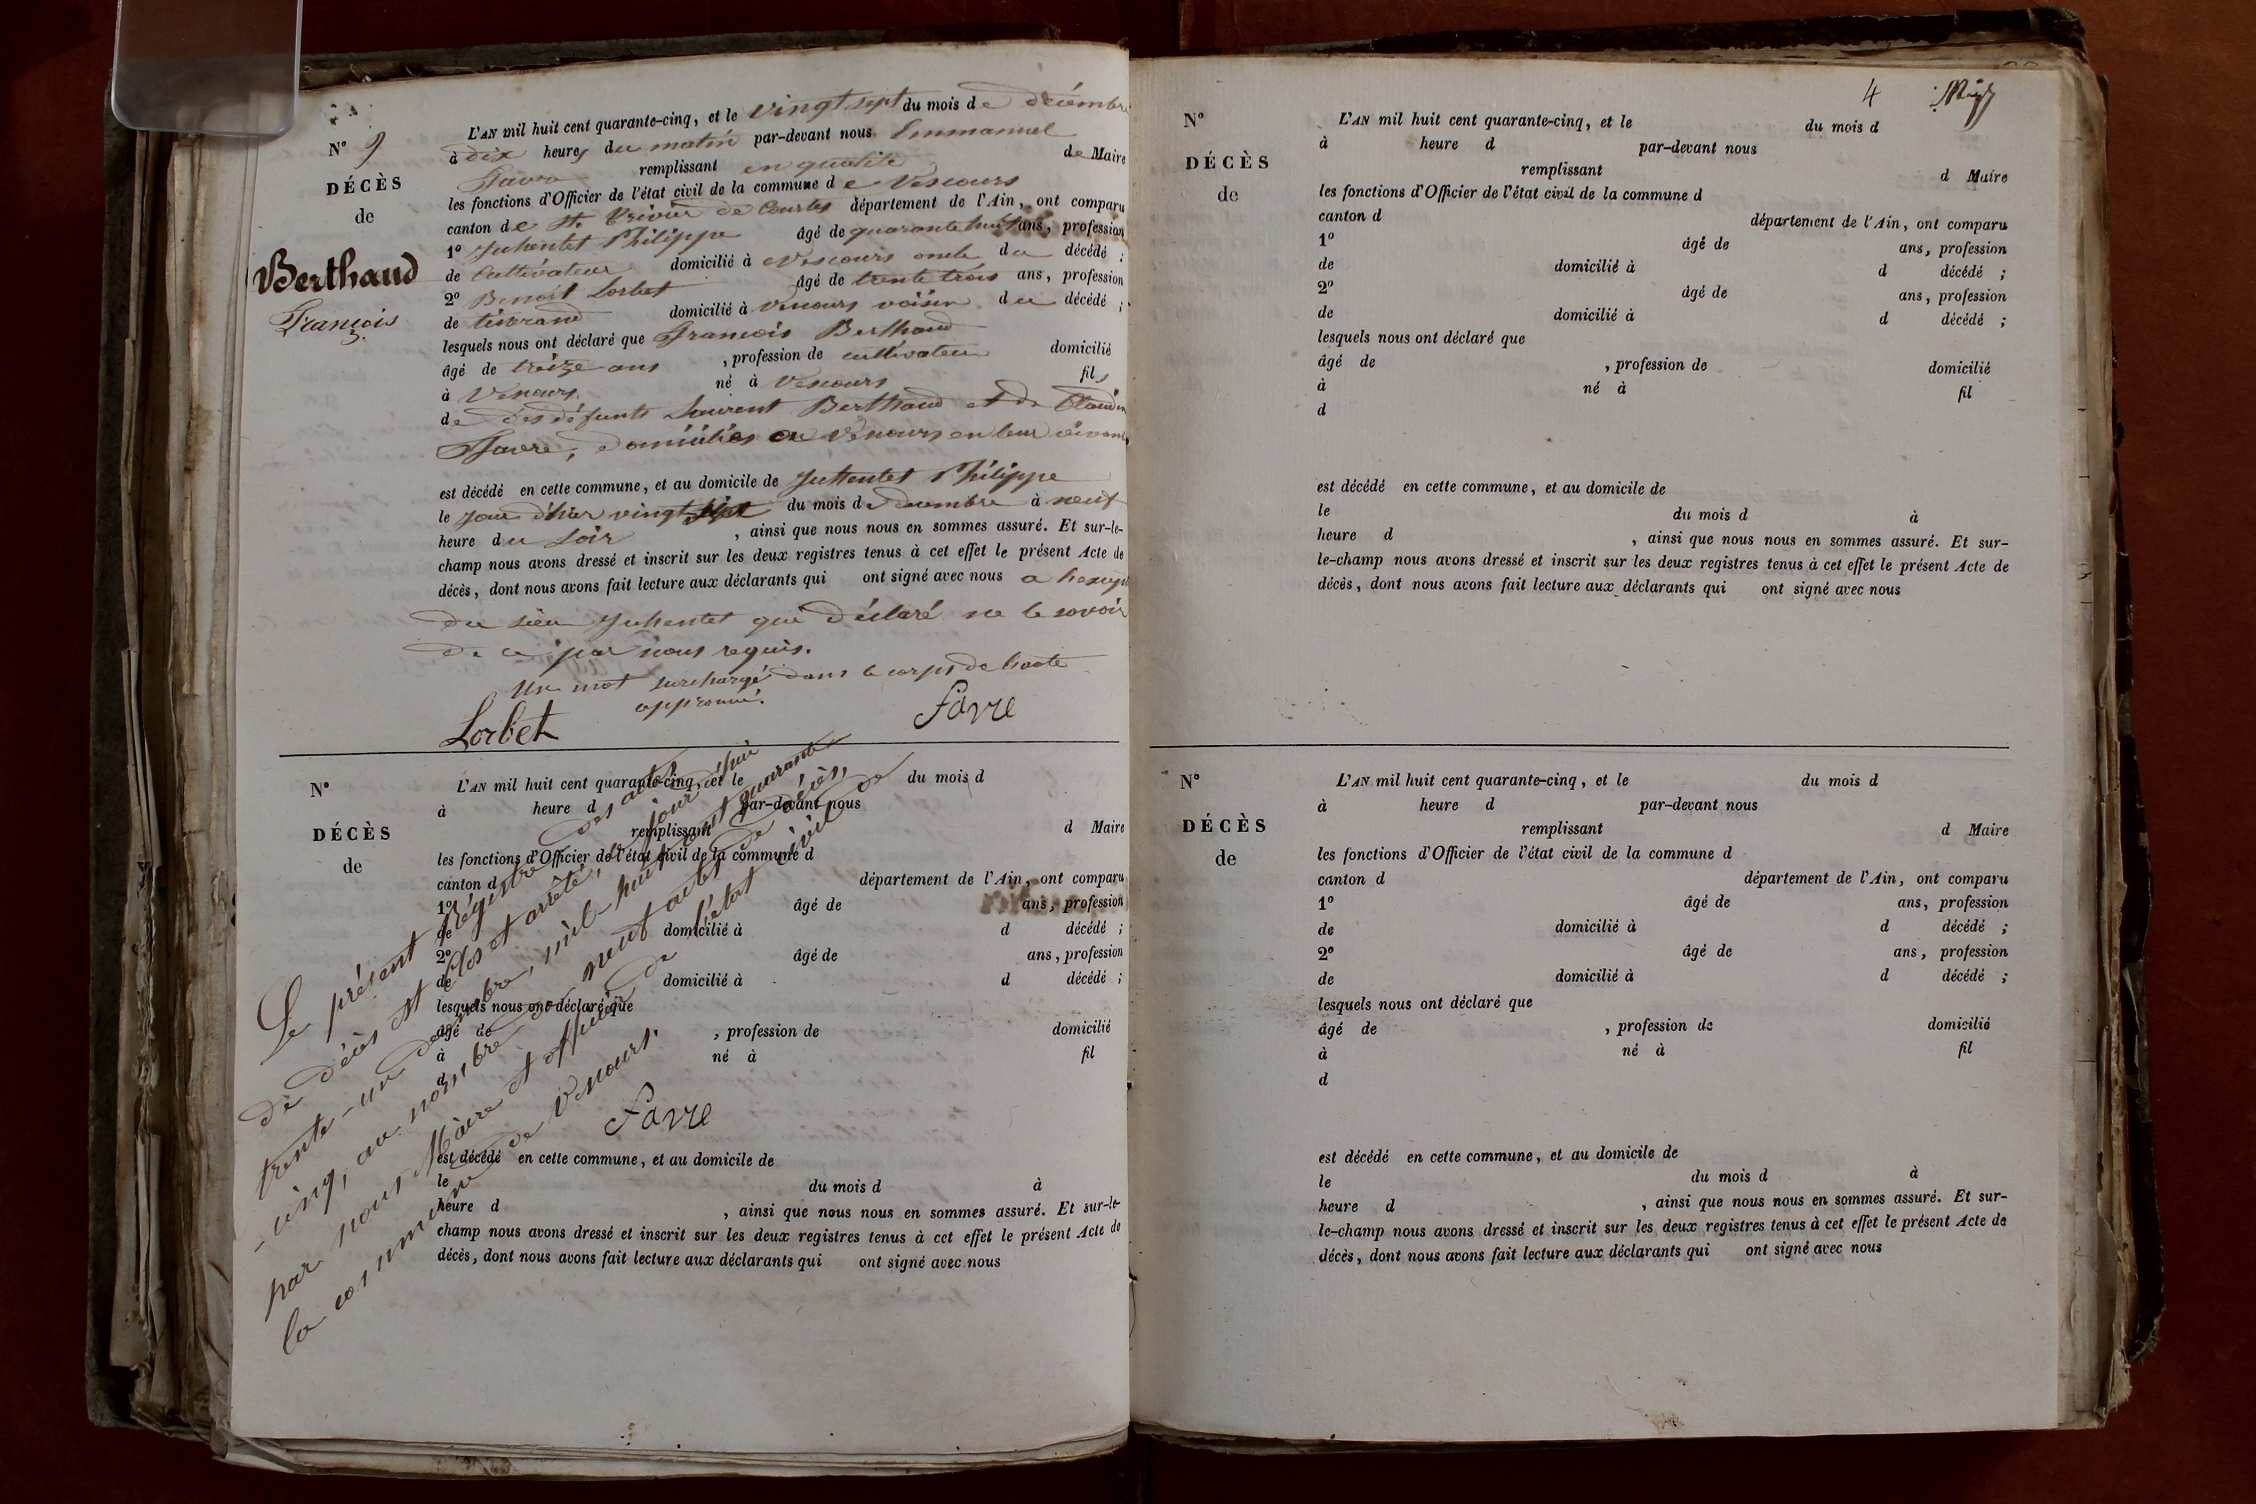 N° 9
DÉCÈS
de
Berthaud
François
L'AN mil huit cent quarante-cinq, et le vingt sept du mois de décembre
à dix heures du matin par-devant nous Emmanuel
Favre remplissant en qualité de Maire
les fonctions d'Officier de l'état civil de la commune de Vescours
canton de St. Trivier de Courtes département de l'Ain, ont comparu
1° Juhentet Philippe âgé de quarante huit ans, profession
de cultivateur domicilié à Vescours oncle du décédé ;
2° Benoit Lorbet âgé de trente trois ans, profession
de tisserand domicilié à Vescours voisin du décédé ;
lesquels nous ont déclaré que François Berthaud
âgé de treize ans , profession de cultivateur domicilié
à Vescours né à Vescours fils
de des défunts Laurent Berthaud et de Claudine
Favre, domiciliés à Vescours en leur vivant,
est décédé en cette commune, et au domicile de Juhentet Philippe
le jour d'hier vingt du mois de décembre à neuf
heure du soir , ainsi que nous nous en sommes assuré. Et sur-le-
champ nous avons dressé et inscrit sur les deux registres tenus à cet effet le présent Acte de
décès, dont nous avons fait lecture aux déclarants qui ont signé avec nous
du sieur Juhentet qui déclaré ne le savoir
de ce par nous requis.
Un mot surchargé dans le corps de l'acte
approuvé.
Lorbet Favre
N°
DÉCÈS
de
L'AN mil huit cent quarante-cinq, et le du mois d
à heure d par-devant nous
remplissant d Maire
les fonctions d'Officier de l'état civil de la commune d
canton d département de l'Ain, ont comparu
1° âgé de ans, profession
de domicilié à d décédé ;
2° âgé de ans, profession
de domicilié à d décédé ;
lesquels nous ont déclaré que
âgé de , profession de domicilié
à né à fil
d
est décédé en cette commune, et au domicile de
le du mois d à
heure d , ainsi que nous nous en sommes assuré. Et sur-le-
champ nous avons dressé et inscrit sur les deux registres tenus à cet effet le présent Acte de
décès, dont nous avons fait lecture aux déclarants qui ont signé avec nous
Le présent Régistre des actes
de décès est clos et arrêté, ce jour d'hui
trente-un décembre, mil huit cent quarante
-cinq, au nombre de neuf actes de décès,
par nous Maire et officier de l'état civil de
la commune de Vescours.
Favre
4
N°
DÉCÈS
de
L'AN mil huit cent quarante-cinq, et le du mois d
à heure d par-devant nous
remplissant d Maire
les fonctions d'Officier de l'état civil de la commune d
canton d département de l'Ain, ont comparu
1° âgé de ans, profession
de domicilié à d décédé ;
2° âgé de ans, profession
de domicilié à d décédé ;
lesquels nous ont déclaré que
âgé de , profession de domicilié
à né à fil
d
est décédé en cette commune, et au domicile de
le du mois d à
heure d , ainsi que nous nous en sommes assuré. Et sur-
le-champ nous avons dressé et inscrit sur les deux registres tenus à cet effet le présent Acte de
décès, dont nous avons fait lecture aux déclarants qui ont signé avec nous
N°
DÉCÈS
de
L'AN mil huit cent quarante-cinq, et le du mois d
à heure d par-devant nous
remplissant d Maire
les fonctions d'Officier de l'état civil de la commune d
canton d département de l'Ain, ont comparu
1° âgé de ans, profession
de domicilié à d décédé ;
2° âgé de ans, profession
de domicilié à d décédé ;
lesquels nous ont déclaré que
âgé de , profession de domicilié
à né à fil
d
est décédé en cette commune, et au domicile de
le du mois d à
heure d , ainsi que nous nous en sommes assuré. Et sur-
le-champ nous avons dressé et inscrit sur les deux registres tenus à cet effet le présent Acte de
décès, dont nous avons fait lecture aux déclarants qui ont signé avec nous